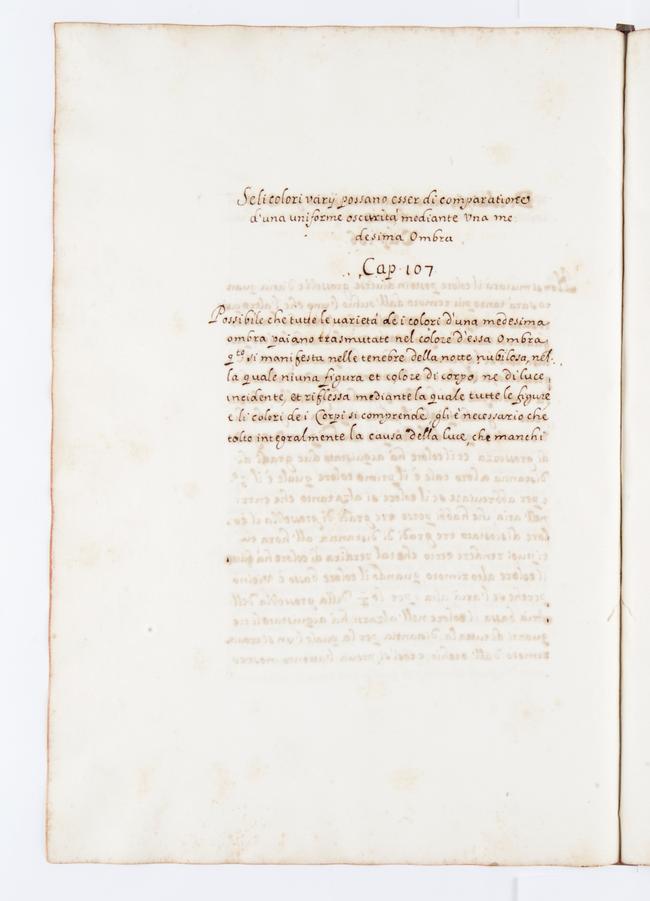 Se li colori varÿ possano esser di comparatione
d'una uniforme oscurità mediante Una me
desima Ombra
Cap. 107.
Possibile che tutte le varietà de i colori d'una medesima
ombra paiano trasmutate nel colore d'essa Ombra
q.to si manifesta nelle tenebre della notte nubilosa, nel
la quale niuna figura et colore di corpo, ne di luce
incidente, et riflessa mediante la quale tutte le figure
e li colori de i Corpi si comprende, gli è necessario che
tolto integralmente la causa della luce, che manchi